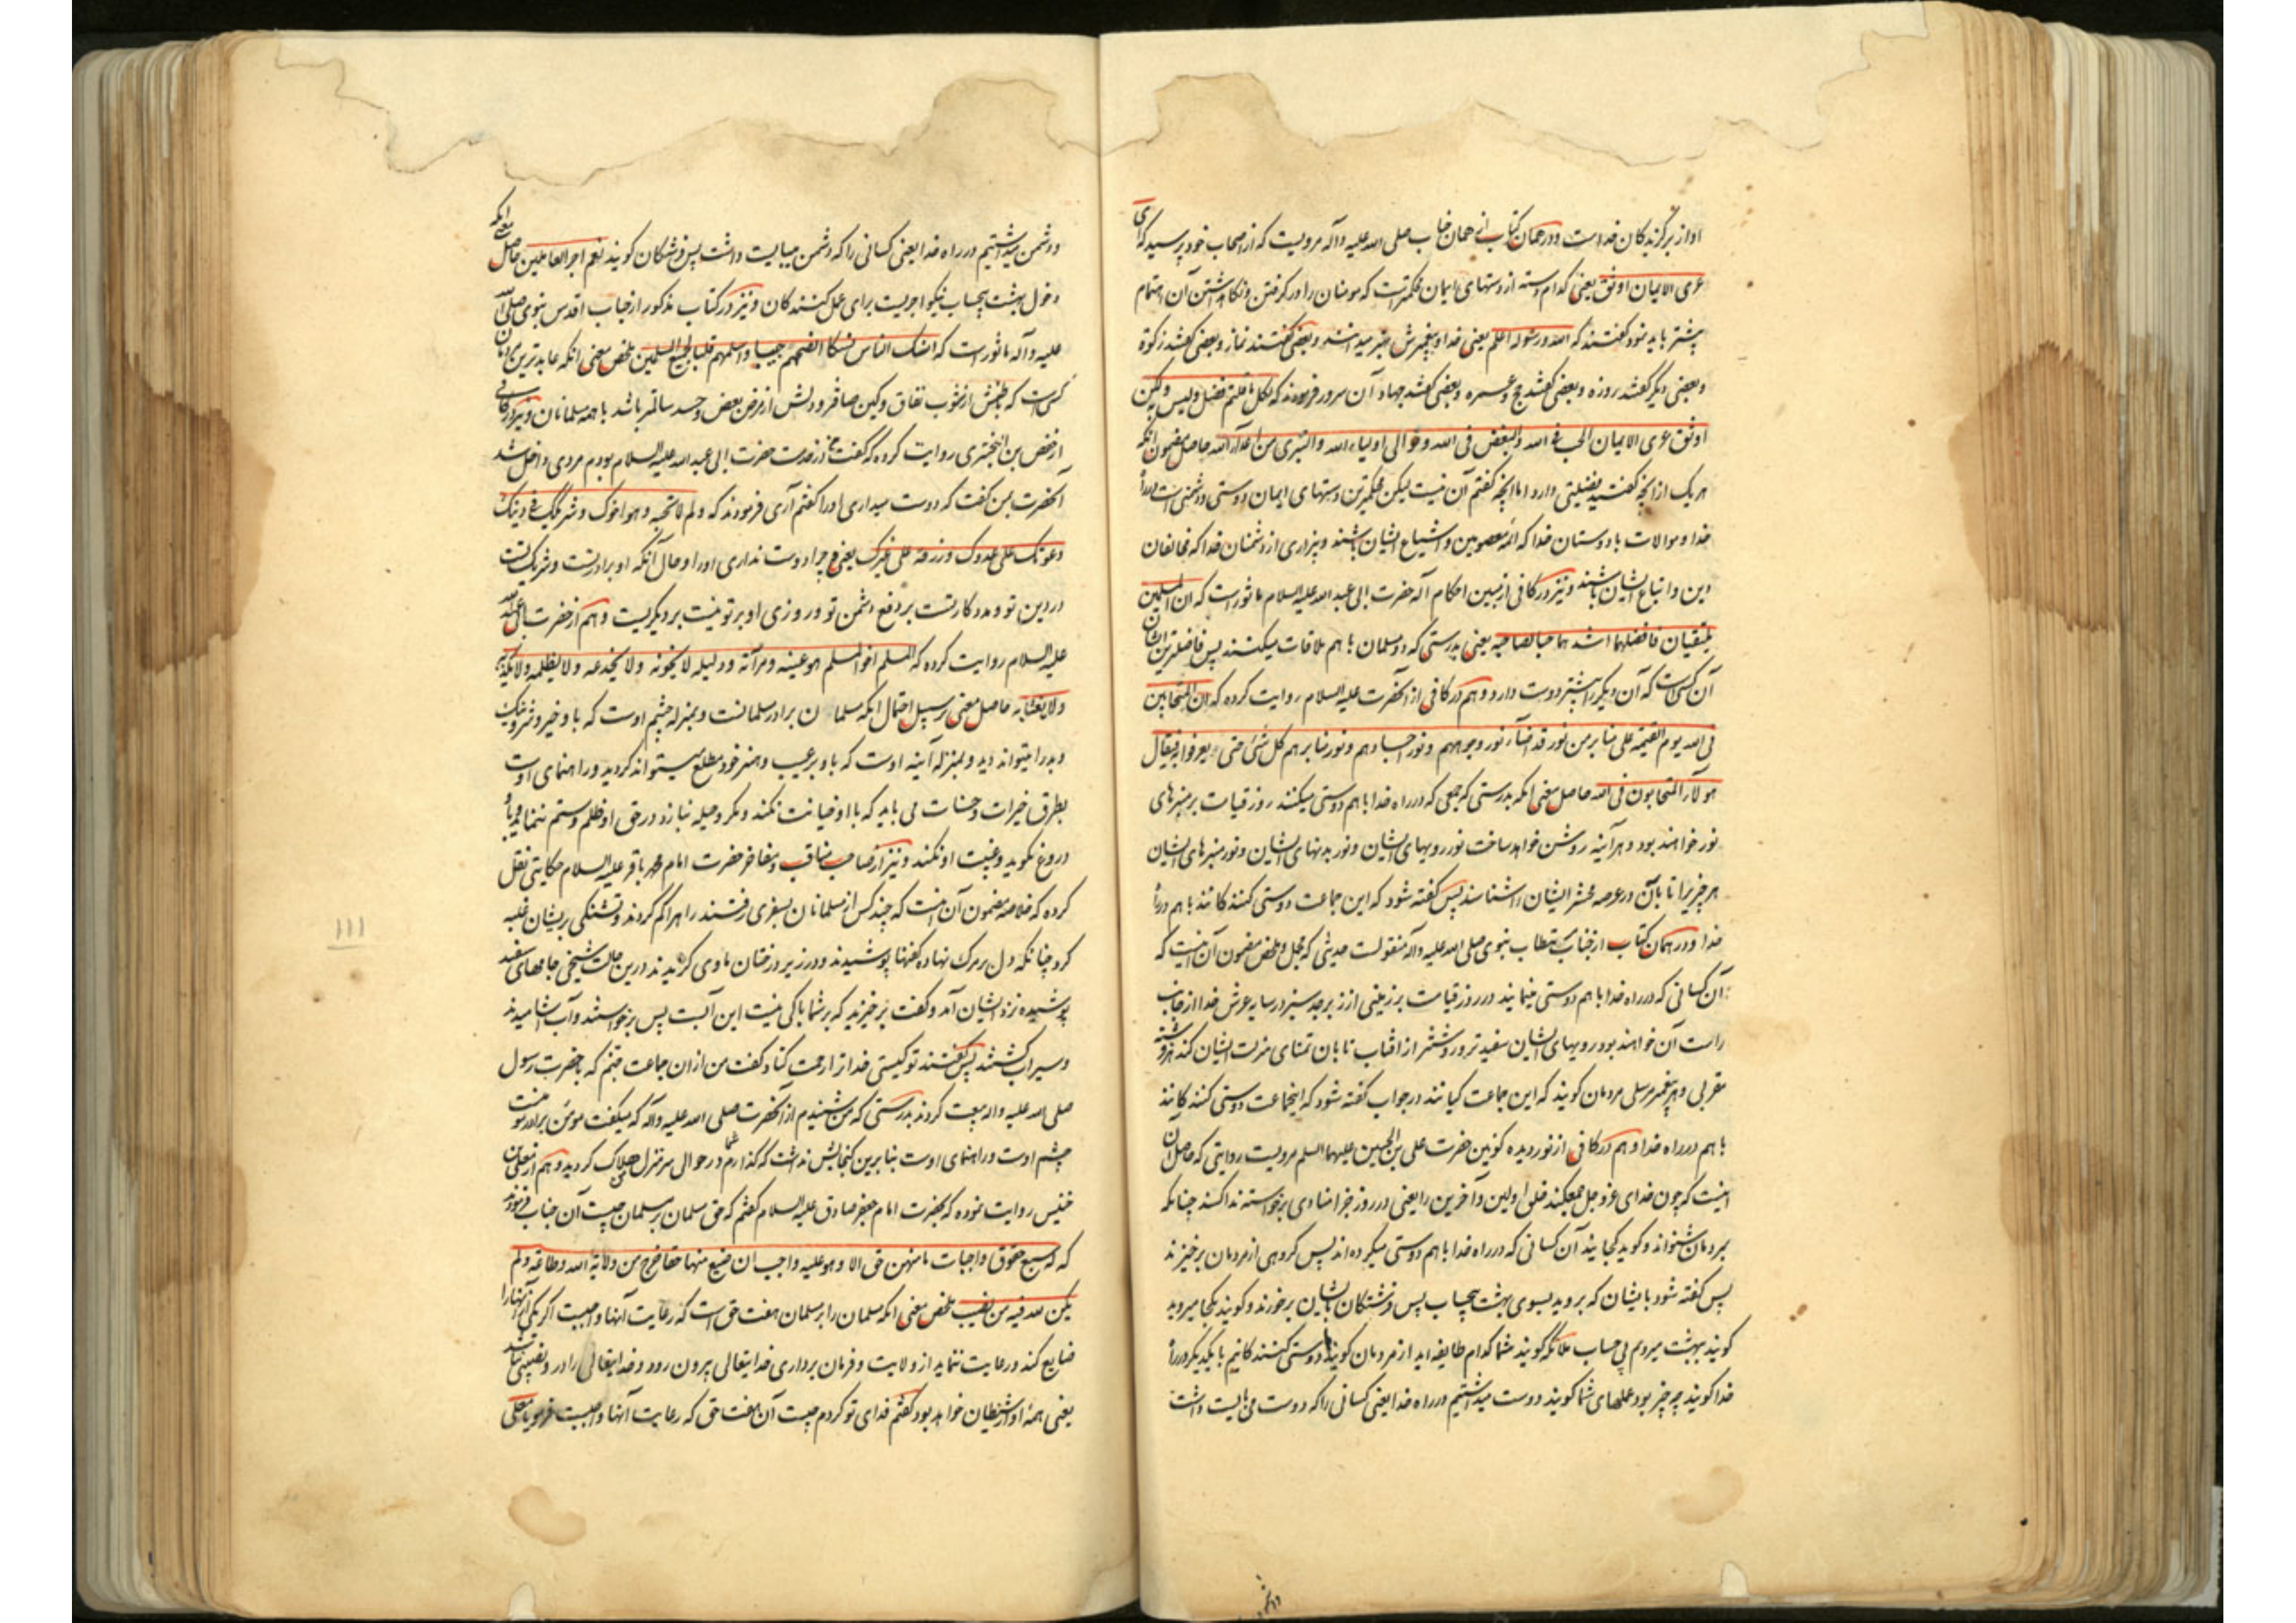 او از برگزیدگان خداست و در همان کتاب از همان جناب صلی الله علیه و آله مرویست که از اصحاب خود پرسید که ای
عری الایمان اوثق یعنی کدام دسته از دستهای ایمان محکمترست که مومنان را در گرفتن و نگاه داشتن آن اهتمام
بیشتر باید نمود گفتند که الله و رسوله اعلم یعنی خدا و پیغمبرش بهتر میدانند و بعضی گفتند نماز و بعضی گفتند زکوة
و بعضی دیگر گفتند روزه و بعضی گفتند حج و عمره و بعضی گفتند جهاد آن سرور فرمودند که لکل ما قلتم فضل و لیس به ولکن
اوثق عری الایمان الحب فی الله والبغض فی الله و توالی اولیاء الله والتبری من اعداء الله حاصل مضمون انکه
هر یک از انچه گفتید فضیلتی دارد اما انچه گفتم آن نیست لیکن محکمترین دستهای ایمان دوستی و دشمنی است در راه
خدا و موالات با دوستان خدا که ائمه معصومین و اشیاع ایشان باشند و بیزاری از دشمنان خدا که مخالفان
دین و اتباع ایشان باشند و نیز در کافی از مبین احکام اله حضرت ابی عبد الله علیه السلام ماثورست که ان المسلمین
یلتقیان فافضلهما اشد هما حبا لصاحبه یعنی بدرستی که دو مسلمان با هم ملاقات میکنند پس فاضلترین ایشان
آن کس است که آن دیگر را بیشتر دوست دارد و هم در کافی از آنحضرت علیه السلام روایت کرده که ان المتحابین
فی الله یوم القیمة علی منابر من نور قد اضاء نور وجوههم و نور اجسادهم و نور منابرهم کل شئ حتی یعرفوا به فیقال
هولاء المتحابون فی الله حاصل معنی انکه بدرستی که جمعی که در راه خدا با هم دوستی میکنند روز قیامت بر منبرهای
نور خواهند بود و هر آینه روشن خواهد ساخت نور رویهای ایشان و نور بدنهای ایشان و نور منبرهای ایشان
هر چیز را تا بآن در عرصه محشر ایشان را شناسند پس گفته شود که این جماعت دوستی کنندکانند با هم در راه
خدا و در همان کتاب از جناب مستطاب نبوی صلی الله علیه و آله منقولست حدیثی که مجمل و ملخص مضمون آن اینست که
آن کسانی که در راه خدا با هم دوستی مینمایند در روز قیامت بر زمینی از زبرجد سبز در سایه عرش خدا از جانب
راست آن خواهند بود رویهای ایشان سفیدتر و روشنتر از افتاب تابان تمنای منزلت ایشان کند هر فرشته
مقربی و هر پیغمبر مرسلی مردمان گویند که این جماعت کیانند در جواب گفته شود که اینجماعت دوستی کنندکانند
با هم در راه خدا و هم در کافی از نور دیده کونین حضرت علی بن الحسین علیهما السلم مرویست روایتی که حاصل آن
اینست که چون خدای عز و جل جمع کند خلق اولین و آخرین را یعنی در روز جزا منادی برخواسته ندا کند چنانکه
مردمان شنواند و گوید کجایند آن کسانی که در راه خدا با هم دوستی میکرده اند پس گروهی از مردمان برخیزند
پس گفته شود بایشان که بروید بسوی بهشت بیحساب پس فرشتگان بایشان برخورند و گویند بکجا میروید
گویند ببهشت میرویم بی حساب ملائکه گویند شما کدام طایفه اید از مردمان گویند ما دوستی کنندکانیم با یکدیگر در راه
خدا گویند چه چیز بود عملهای شما گویند دوست میداشتیم در راه خدا یعنی کسانی را که دوست می بایست داشت
و دشمن میداشتیم در راه خدا یعنی کسانی را که دشمن میبایست داشت پس فرشتگان گویند نعم اجر العاملین حاصل معنی انکه
دخول بهشت بیحساب نیکو اجریست برای عمل کنندکان و نیز در کتاب مذکور از جناب اقدس نبوی صلی الله
علیه و آله ماثورست که انسک الناس نسکا انصحهم جیبا و اسلمهم قلبا لجمیع المسلمین ملخص معنی انکه عابدترین مردمان
کسی است که طینتش از شوب نفاق و کین صافتر و دلش از مرض بغض و حسد سالمتر باشد با همه مسلمانان و نیز در کافی
از حفص بن البختری روایت کرده که گفت در خدمت حضرت ابی عبد الله علیه السلام بودم مردی داخل شد
آنحضرت بمن گفت که دوست میداری او را گفتم آری فرمودند که و لم لا تحبه و هو اخوک و شریکک فی دینک
و عونک علی عدوک و رزقه علی غیرک یعنی چرا دوست نداری او را و حال آنکه او برادرتست و شریک تست
در دین تو و مددکار تست بر دفع دشمن تو و روزی او بر تو نیست بر دیگریست و هم از حضرت ابی عبد الله
علیه السلام روایت کرده که المسلم اخو المسلم هو عینه و مرآته و دلیله لا یخونه و لا یخدعه و لا یظلمه و لا یکذبه
و لا یغتابه حاصل معنی بر سبیل احتمال انکه مسلمان برادر مسلمانست و بمنزله چشم اوست که باو خیر و شر و نیک
و بد را میتواند دید و بمنزله آینه اوست که باو بر عیب و هنر خود مطلع میتواند گردید و راهنمای اوست
بطرق خیرات و حسنات می باید که با او خیانت نکند و مکر و حیله نبازد و در حق او ظلم و ستم ننماید و با او
دروغ نگوید و غیبت او نکند و نیز از صاحب مناقب و مفاخر حضرت امام محمد باقر علیه السلام حکایتی نقل
کرده که خلاصه مضمون آن اینست که چند کس از مسلمانان بسفری رفتند راه را گم کردند و تشنگی بر ایشان غلبه
کرد چنانکه دل بر مرگ نهاده کفنها پوشیدند و در زیر درختان ماوی گزیدند در این حالت شیخی جامهای سفید
پوشیده نزد ایشان آمد و گفت برخیزید که بر شما باکی نیست این آبست پس برخواستند و آب اشامیدند
و سیراب گشتند پس گفتند تو کیستی خدا ترا رحمت کناد گفت من از ان جماعت جنم که با حضرت رسول
صلی الله علیه و اله بیعت کردند بدرستی که من شنیدم از آنحضرت صلی الله علیه و آله که میگفت مومن برادر مومنست
چشم اوست و راهنمای اوست بنابرین گنجایش نداشت که گذارم شما در حوالی سر منزل من هلاک گردید و هم از معلی بن
خنیس روایت نموده که بحضرت امام جعفر صادق علیه السلام گفتم که حق مسلمان بر مسلمان چیست آن جناب فرمودند
که له سبع حقوق واجبات ما منهن حق الا و هو علیه واجب ان ضیع منها حقا خرج من ولایة الله و طاعته و لم
یکن لله فیه من نصیب ملخص معنی انکه مسلمان را بر مسلمان هفت حق است که رعایت آنها واجبست اگر یکی از آنها را
ضایع کند و رعایت ننماید از ولایت و فرمان برداری خدایتعالی بیرون رود و خدایتعالی را در و نصیبی نباشد
یعنی همه او از شیطان خواهد بود گفتم فدای تو گردم چیست آن هفت حق که رعایت آنها واجبست فرمود یا معلی